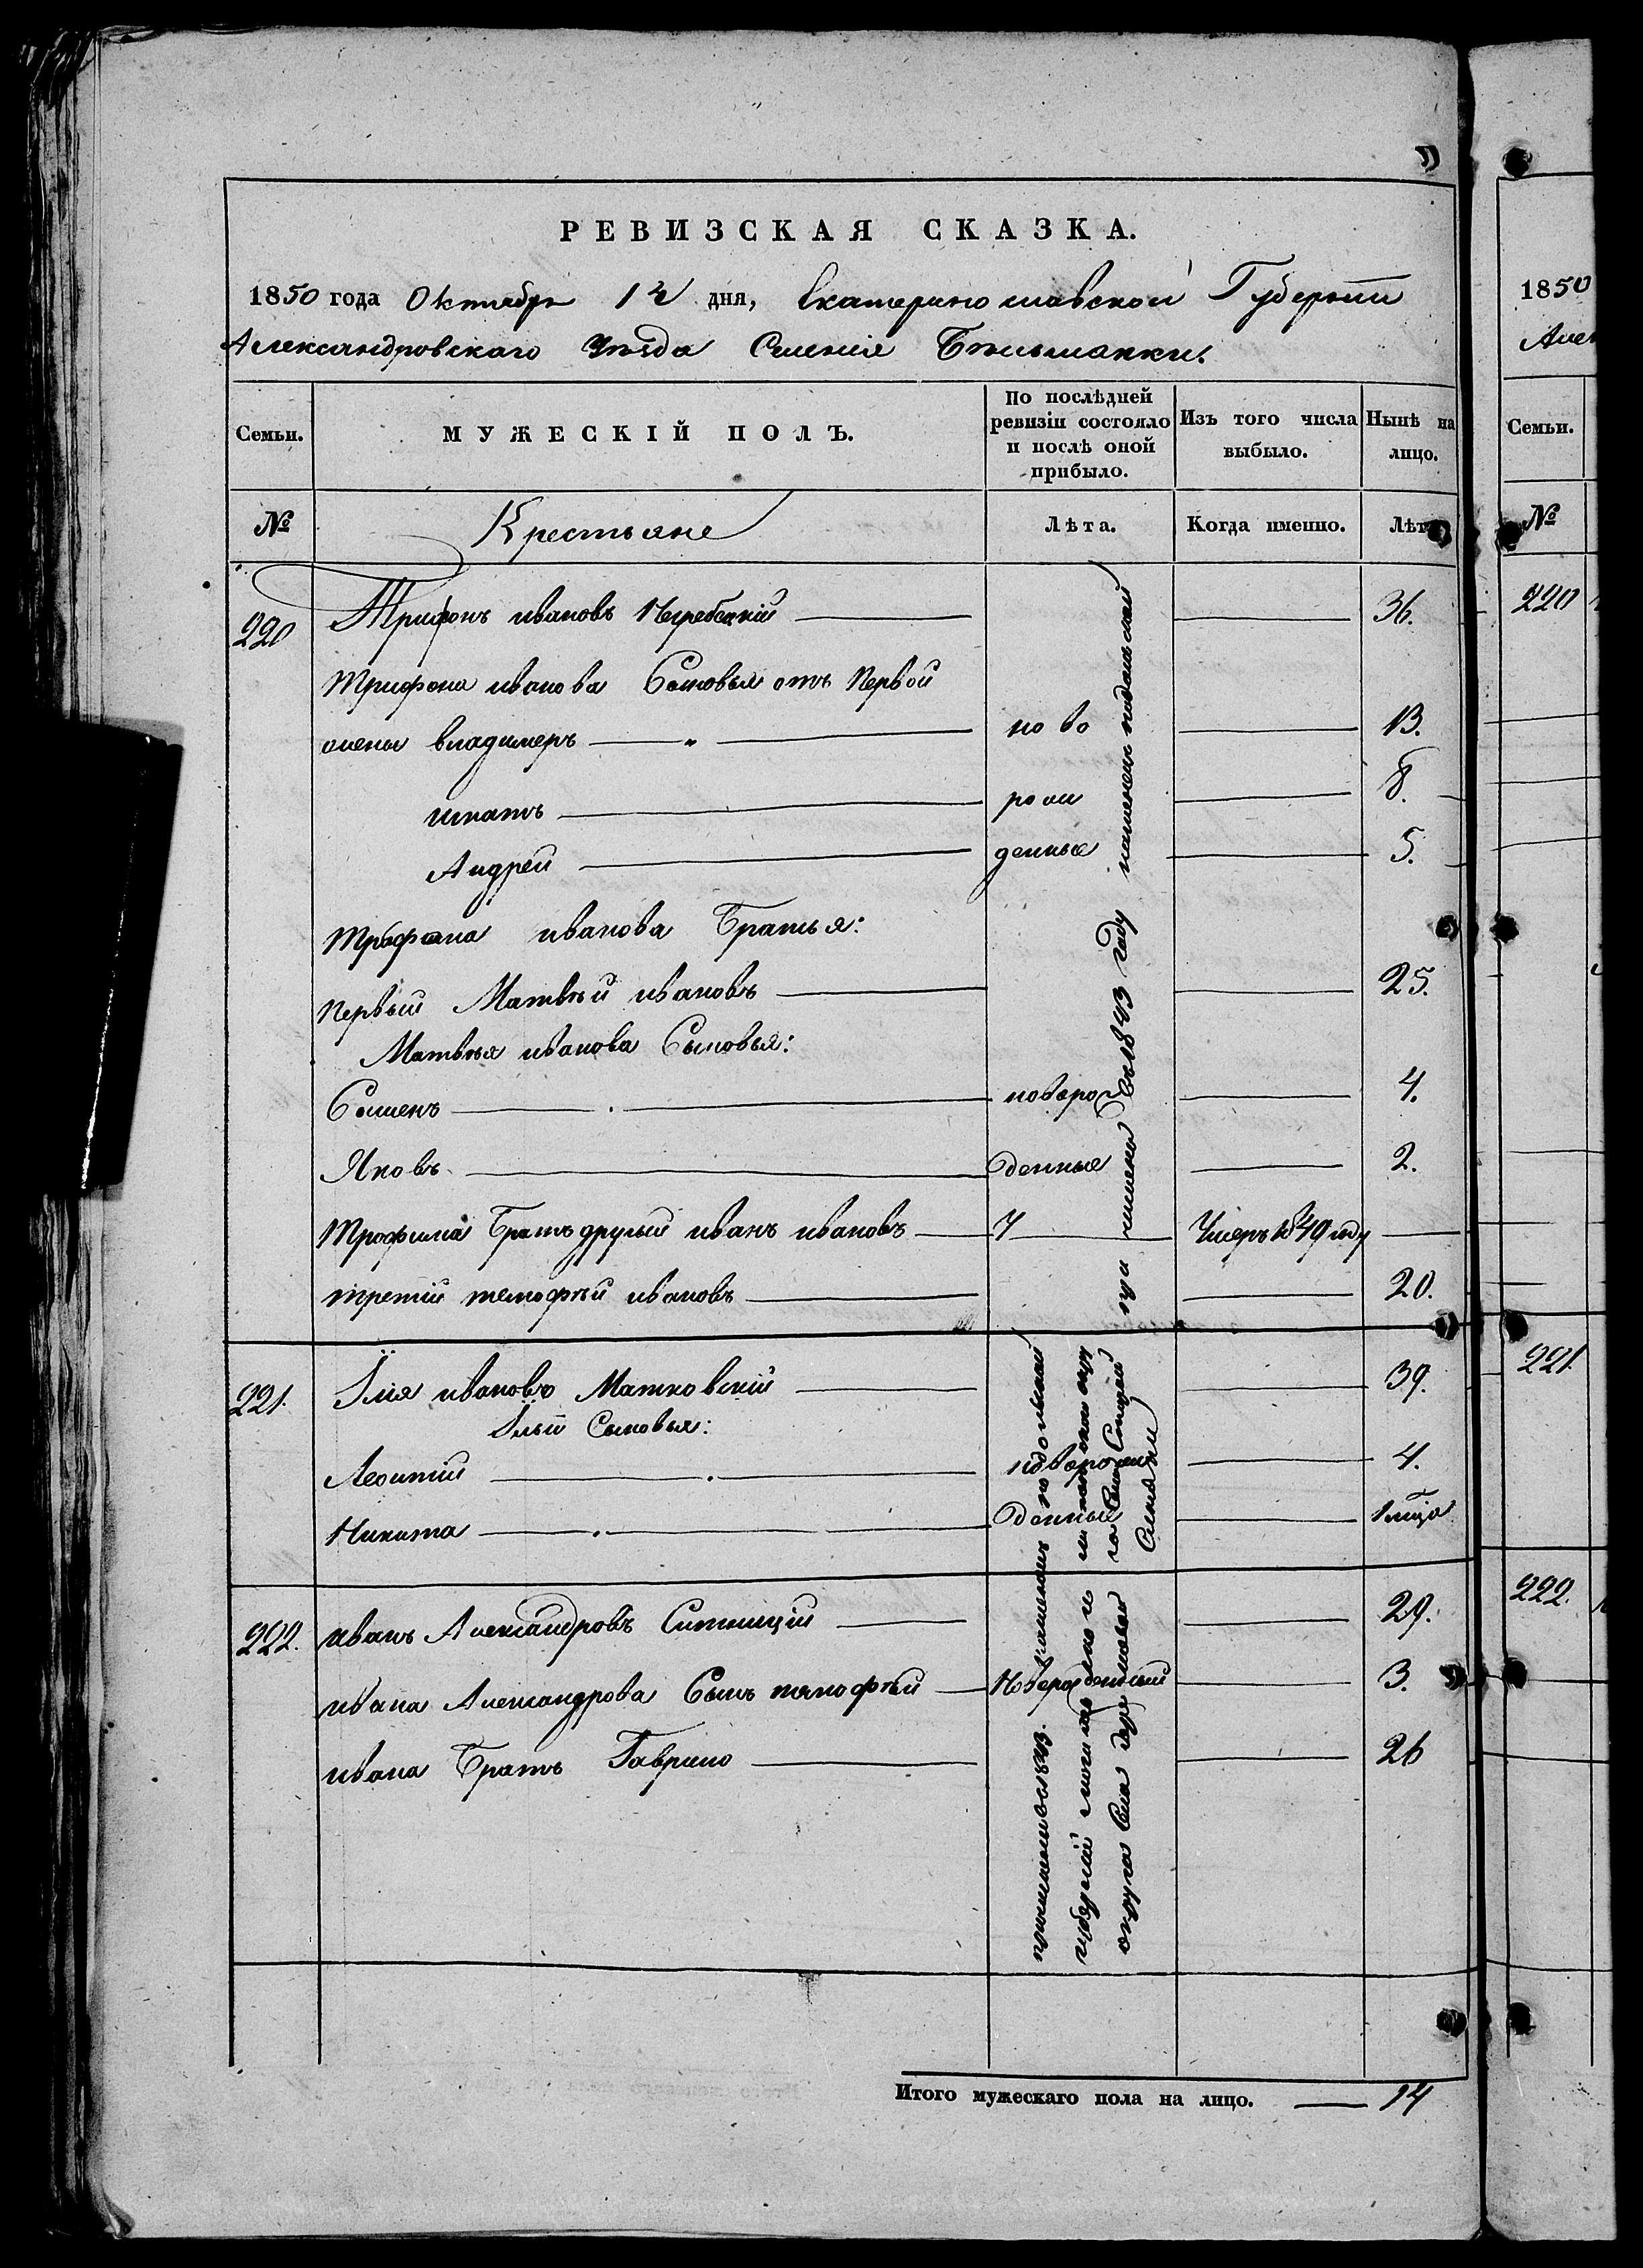 РЕВИЗСКАЯ СКАЗКА.
1850 года Октября 12 дня, Екатеринославской Губерніи
Александровскаго Уѣзда Селенія Бѣльманки.
Семьи.
МУЖЕСКІЙ ПОЛЪ.
По послѣдней ревизіи состояло и послѣ оной прибыло.
Изъ того числа выбыло.
Нынѣ на лицо.
№
Крестьяне
Лѣта.
Когда именно.
Лѣта
220 Трифонъ ивановъ — 36.
Трифона иванова Сыновья отъ Первой
жены владимеръ — ново — 13.
игнатъ — рож — 8.
Андрей — денные — 5.
Трифона иванова Братья:
Первый Матвѣй ивановъ — 25.
Матвѣя иванова Сыновья:
Семенъ — новорож — 4.
Яковъ — денные — 2.
Трофима Братъ другій иванъ ивановъ — 7 — Умеръ в 849 году —
третій тимофѣй ивановъ — 20.
въ 1843 году
221. Илія ивановъ Матковскій — 39.
Ильи Сыновья:
Леонтій — новорож — 4.
Никита — денные —
222. иванъ Александровъ Ситницкій — 29.
ивана Александрова Сынъ тимофѣй — Новорожденный — 3.
ивана Братъ Гаврило — 26
губерніи
округа Села
Итого мужескаго пола на лицо. — 14
1850
Алек
Семьи.
№
220
221.
222.